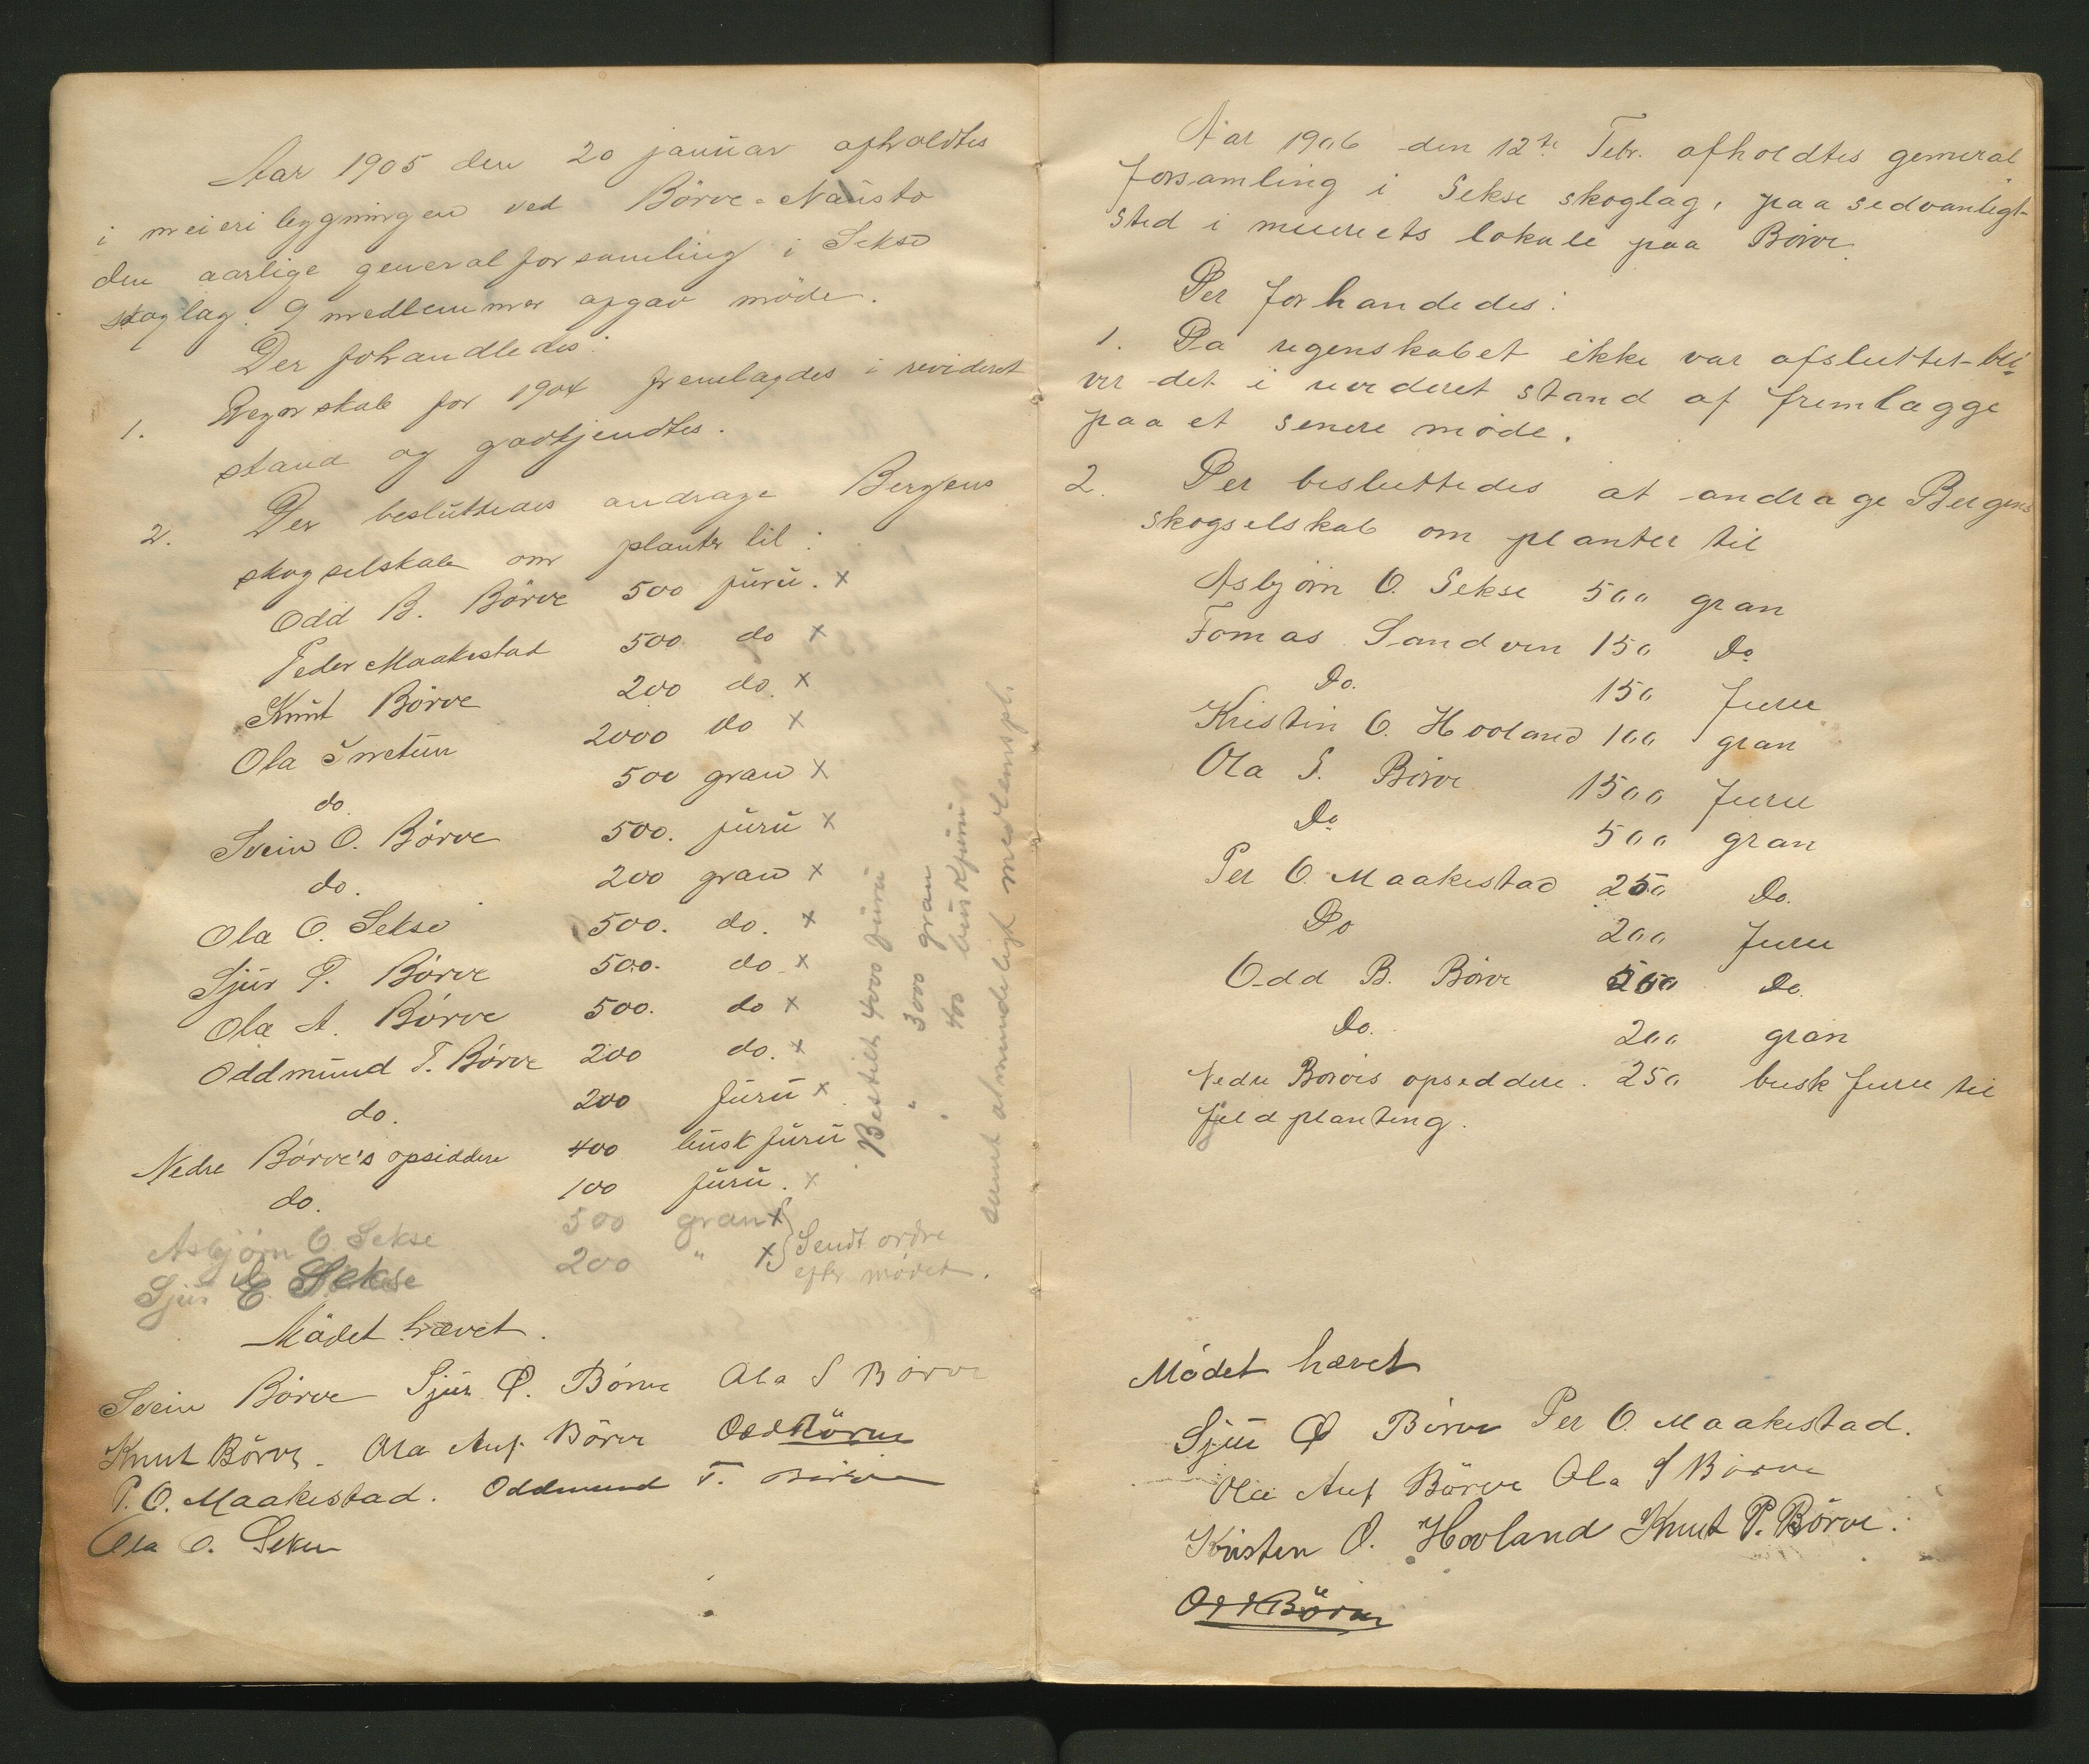 Aar 1905 den 20 januar afholdtes
i meieribygningen ved Börve-Nausto
den aarlige generalforsamling i Sekse
skoglag. 9 medlemmer afgav möde.
Der fohandledes:
1. Regnskab for 1904 fremlagdes i revideret
stand og godkjendtes.
2. Der besluttedes andrage Bergens
skogselskab om planter til:
Odd B. Börve 500 furu. x
Peder Maakestad 500 do x
Knut Börve 200 do. x
Ola Inretun 2000 do x
do. 500 gran x
Svein O. Börve 500. furu x
do. 200 gran x
Ola O. Sekse 500. do. x
Sjur P. Börve 500. do x
Ola A. Börve 500. do x
Oddmund T. Börve 200 do. x
do. 200 furu x
Nedre Börve's opsiddere 400 busk furu
do. 100 furu. x
Asbjørn O Sekse 500 gran x
Sjur E. Sekse 200 " x
Sendt ordre
efter mødet.
Bestilt 4000 furu
" 3000 gran
" 400 buskfuru
samt almindeligt medlemspl.
Mödet hævet.
Svein Börve Sjur Ø. Börve Ola S Börve
Knut Börve. Ola Auf. Börve Odd Börve
P. O. Maakestad. Oddmund T. Börve
Ola O. Sekse
Aar 1906 den 12te Febr. afholdtes general
forsamling i Sekse skoglag, paa sedvanligt
sted i meieriets lokale paa Börve.
Der forhandedes:
1. Da regenskabet ikke var afsluttet bli-
ver det i revideret stand af fremlagge
paa et senere möde.
2. Der besluttedes at andrage Bergens
skogselskab om planter til
Asbjörn O. Sekse 500 gran
Tomas Sandven 150 Do
Do. 150 Furu
Kristin O. Hovland 100 gran
Ola S. Börve 1500 Furu
Do 500 gran
Per O. Maakestad 250 Do.
Do 200 Furu
Odd B. Börve 500 Do.
Do. 200 gran
Nedre Börves opseddere. 250 busk furu til
fjeldplanting.
Mödet hævet
Sjur Ø Börve Per O. Maakestad.
Ola Auf Börve Ola S Börve
Kristen O. Hovland Knut P. Börve.
Odd Börve